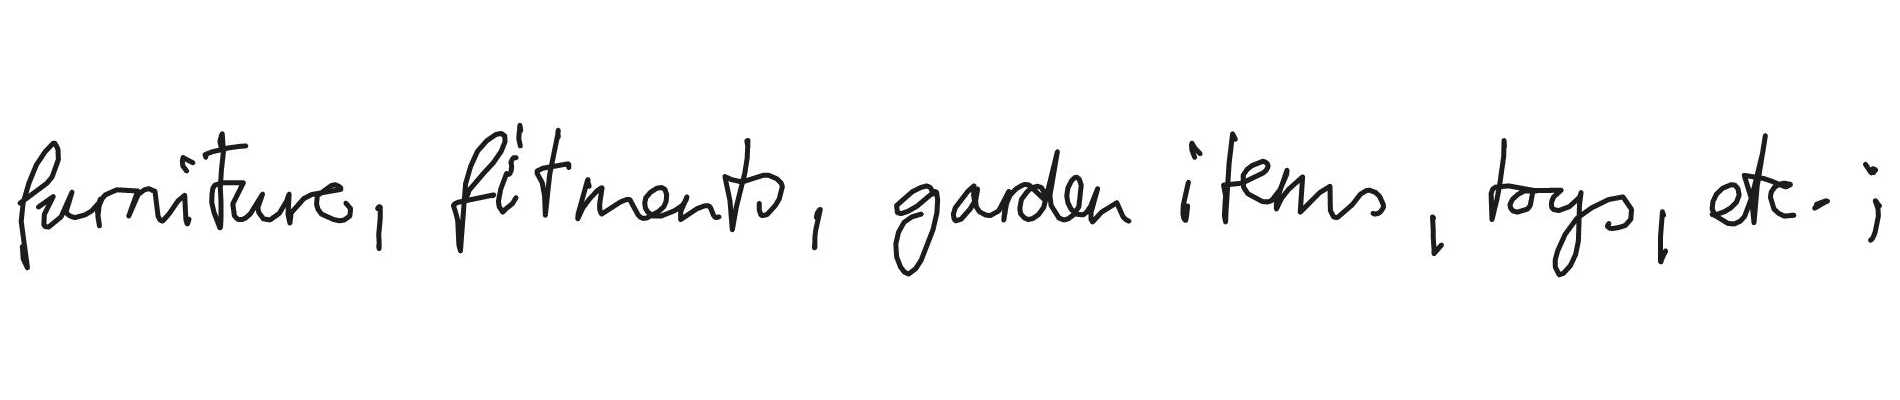 furniture, fitments, garden items, toys, etc.;